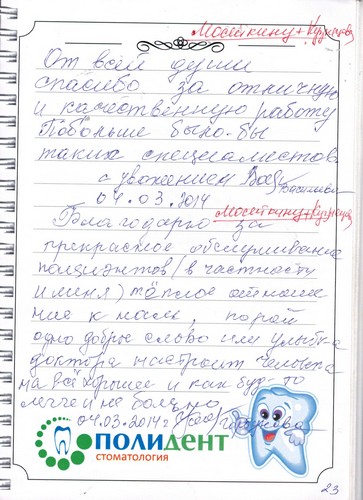 Мосейкину + Кузнецова
От всей души
спасибо за отличную
и качественную работу
Побольше было-бы
таких специалистов
с уважением
04.03.2014
Благодарю за
прекрасное обслуживание
пациентов (в частности
и меня) тёплое отноше
ние к нам, порой
одно доброе слово или улыбка
доктора настроит человека
на всё хорошее и как буд-то
легче и не больно
04.03.2014г
ПОЛИДЕНТ
СТОМАТОЛОГИЯ
23